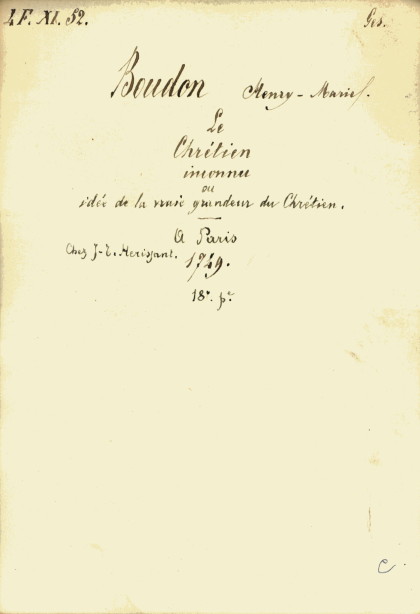 I.F. XI. 52. Ges.
Boudon Henry-Marie.
Le
Chrétien
inconnu
ou
idée de la vraie grandeur du Chrétien.
A Paris
Chez J-T. Herissant.
1749.
18°. p.
C.